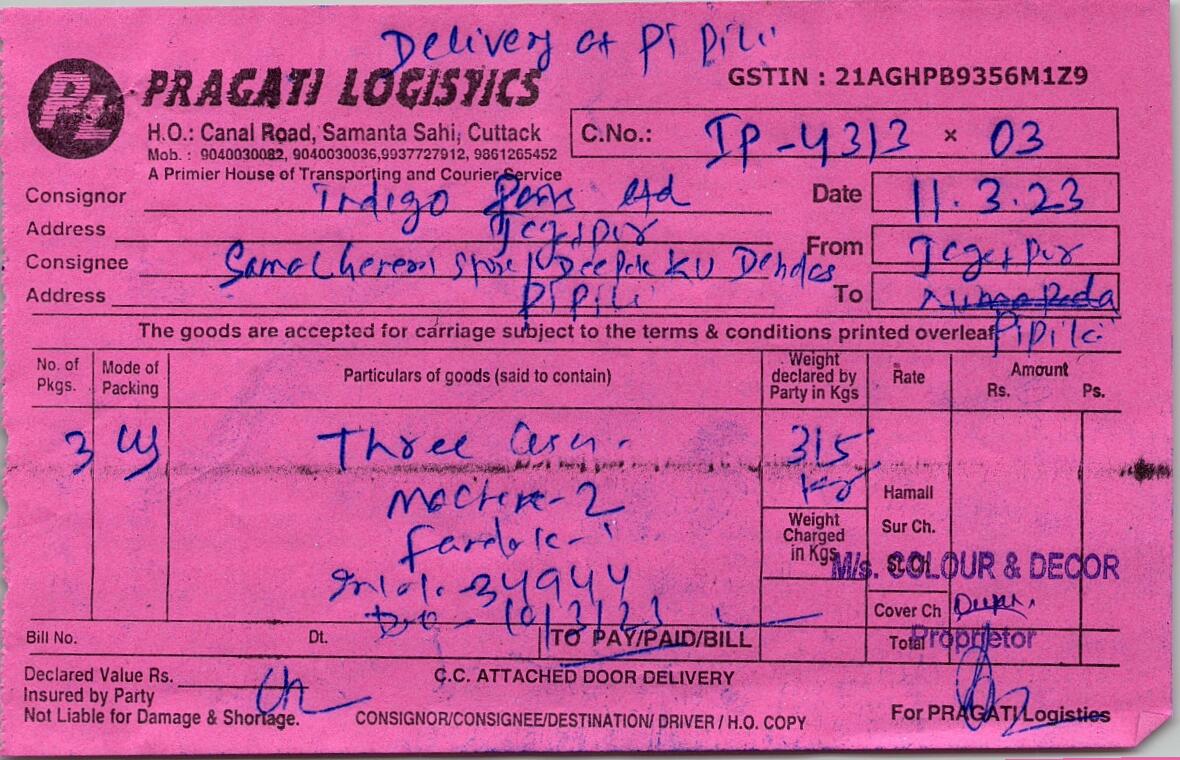 Delivery at Pipili
PL PRAGATI LOGISTICS
GSTIN : 21AGHPB9356M1Z9
H.O.: Canal Road, Samanta Sahi, Cuttack
Mob. : 9040030082, 9040030036,9937727912, 9861265452
A Primier House of Transporting and Courier Service
C.No.: IP-4313 x 03
Consignor Indigo Ltd
Date 11.3.23
Address
From
Consignee Store / Deepak KU
Address Pipili
To Pipili
The goods are accepted for carriage subject to the terms & conditions printed overleaf
No. of Pkgs. Mode of Packing Particulars of goods (said to contain) Weight declared by Party in Kgs Rate Amount Rs. Ps.
3 Three 315
-2
Hamali
Weight Charged in Kgs
Sur Ch.
St. Ch.
M/s. COLOUR & DECOR
34944
10/3/23
Cover Ch
Bill No. Dt. TO PAY/PAID/BILL Total
Proprietor
Declared Value Rs.
C.C. ATTACHED DOOR DELIVERY
Insured by Party
Not Liable for Damage & Shortage.
CONSIGNOR/CONSIGNEE/DESTINATION/ DRIVER / H.O. COPY
For PRAGATI Logistics